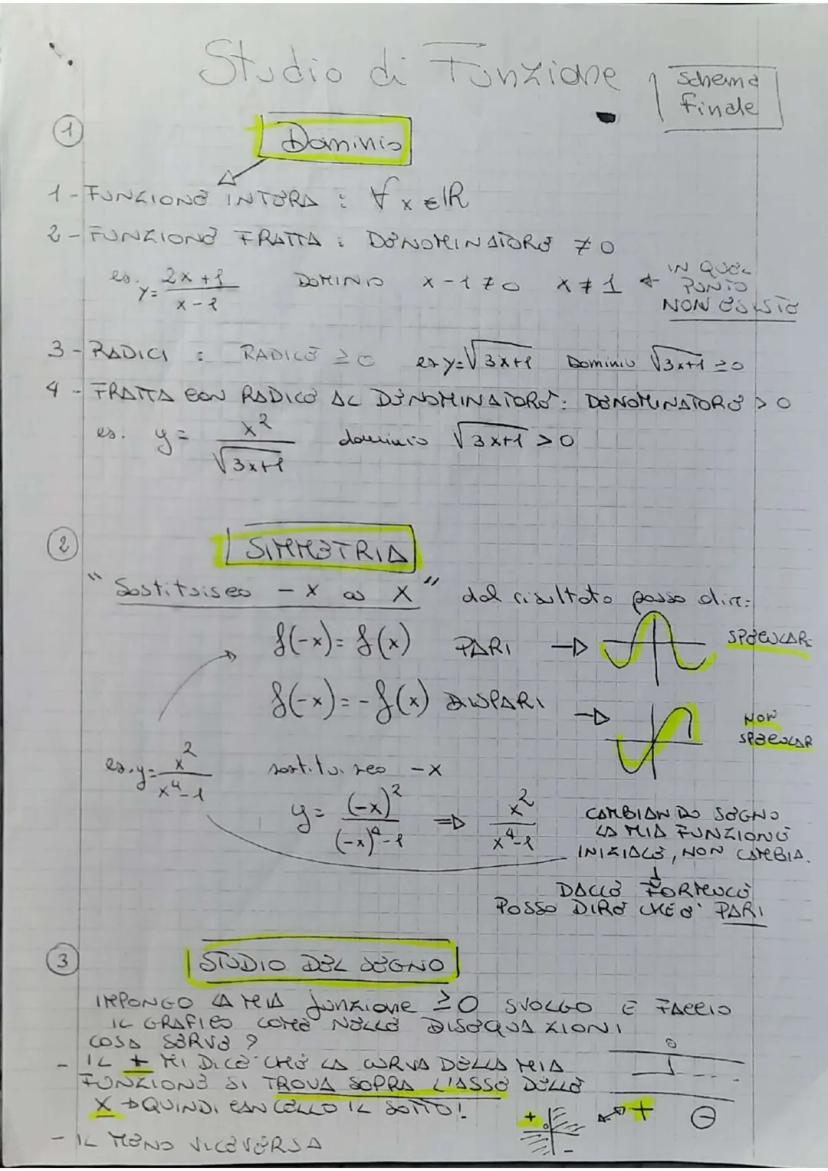 Studio di Funzione
schema
finale
1
Dominio
1 - FUNZIONE INTERA : ∀ x ∈ ℝ
2 - FUNZIONE FRATTA : DENOMINATORE ≠ 0
es. y = (2x+1)/(x-1) DOMINIO x-1 ≠ 0 x ≠ 1 ← IN QUEL
PUNTO
NON ESISTE
3 - RADICI : RADICE ≥ 0 es y = √(3x+1) Dominio √(3x+1) ≥ 0
4 - FRATTA CON RADICE AL DENOMINATORE : DENOMINATORE > 0
es. y = x²/√(3x+1) dominio √(3x+1) > 0
2
SIMMETRIA
"Sostituisco -x a x" dal risultato posso dire:
f(-x) = f(x) PARI → SPECULARE
f(-x) = -f(x) DISPARI → NON
SPECULAR
es. y = x²/(x⁴-1) sostituisco -x
y = (-x)²/((-x)⁴-1) ⇒ x²/(x⁴-1)
CAMBIANDO SEGNO
LA MIA FUNZIONE
INIZIALE, NON CAMBIA.
↓
DALLE FORMULE
POSSO DIRE CHE È PARI
3
STUDIO DEL SEGNO
IMPONGO LA MIA funzione ≥ 0 SVOLGO E FACCIO
IL GRAFICO COME NELLE DISEQUAZIONI
COSA SERVE ?
0
- IL + MI DICE CHE LA CURVA DELLA MIA
FUNZIONE SI TROVA SOPRA L'ASSO DELLE
X → QUINDI CANCELLO IL SOTTO!
+ - ↔ + -
- IL MENO VICEVERSA